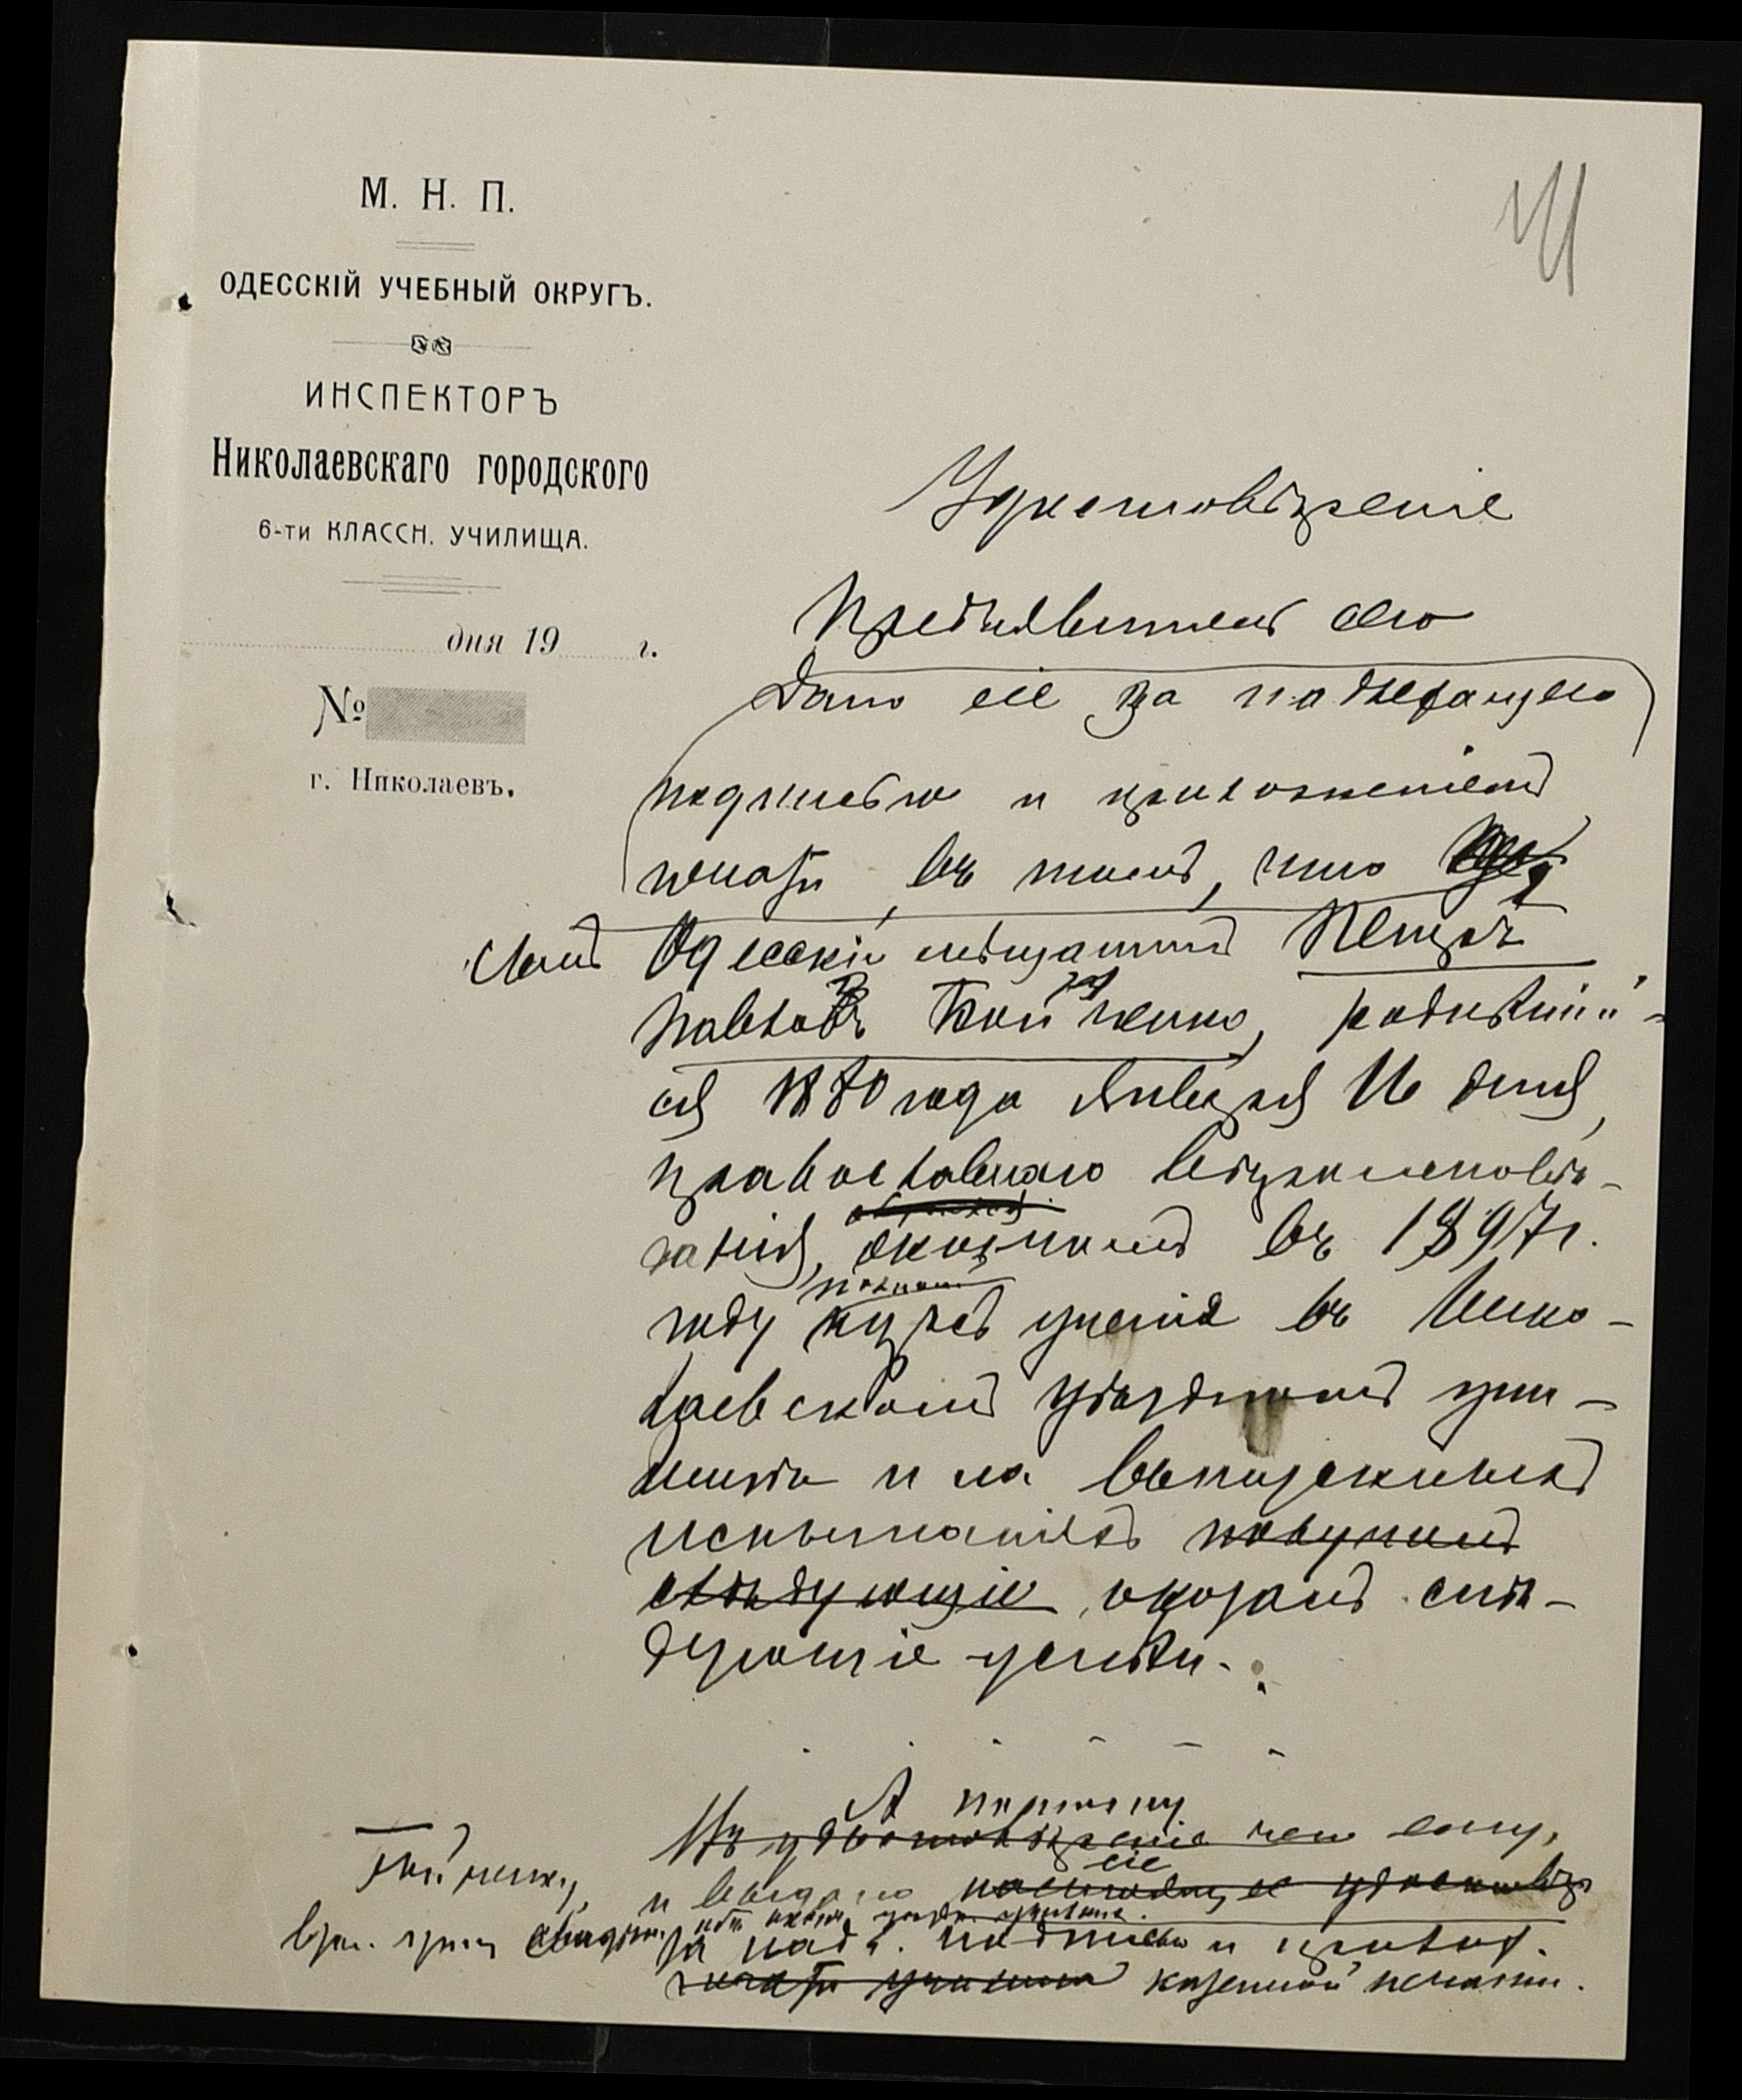 М. Н. П.
ОДЕССКІЙ УЧЕБНЫЙ ОКРУГЪ.
ИНСПЕКТОРЪ
Николаевскаго городского
6-ти КЛАССН. УЧИЛИЩА.
дня 19 г.
№
г. Николаевъ.
Удостовѣреніе
Предъявитель сего
Дано сіе за надлежащею
подписью и приложеніемъ
печати, въ томъ, что
сынъ Одесскій мѣщанинъ Петръ
Павловъ Бойченко, родившій-
ся 1880 года Января 16 дня,
православнаго вѣроисповѣ-
данія, окончилъ въ 1897 г.
году полный
курсъ ученія въ Нико-
лаевскомъ уѣздномъ учи-
лищѣ и на выпускныхъ
испытаніяхъ получилъ
слѣдующіе оказалъ слѣ-
дующіе успѣхи.
А потому
Въ удостовѣреніе чего ему,
сіе
и выдано настоящее удостовѣр
за надл. подписью и прилож.
печати училища казенной печати.